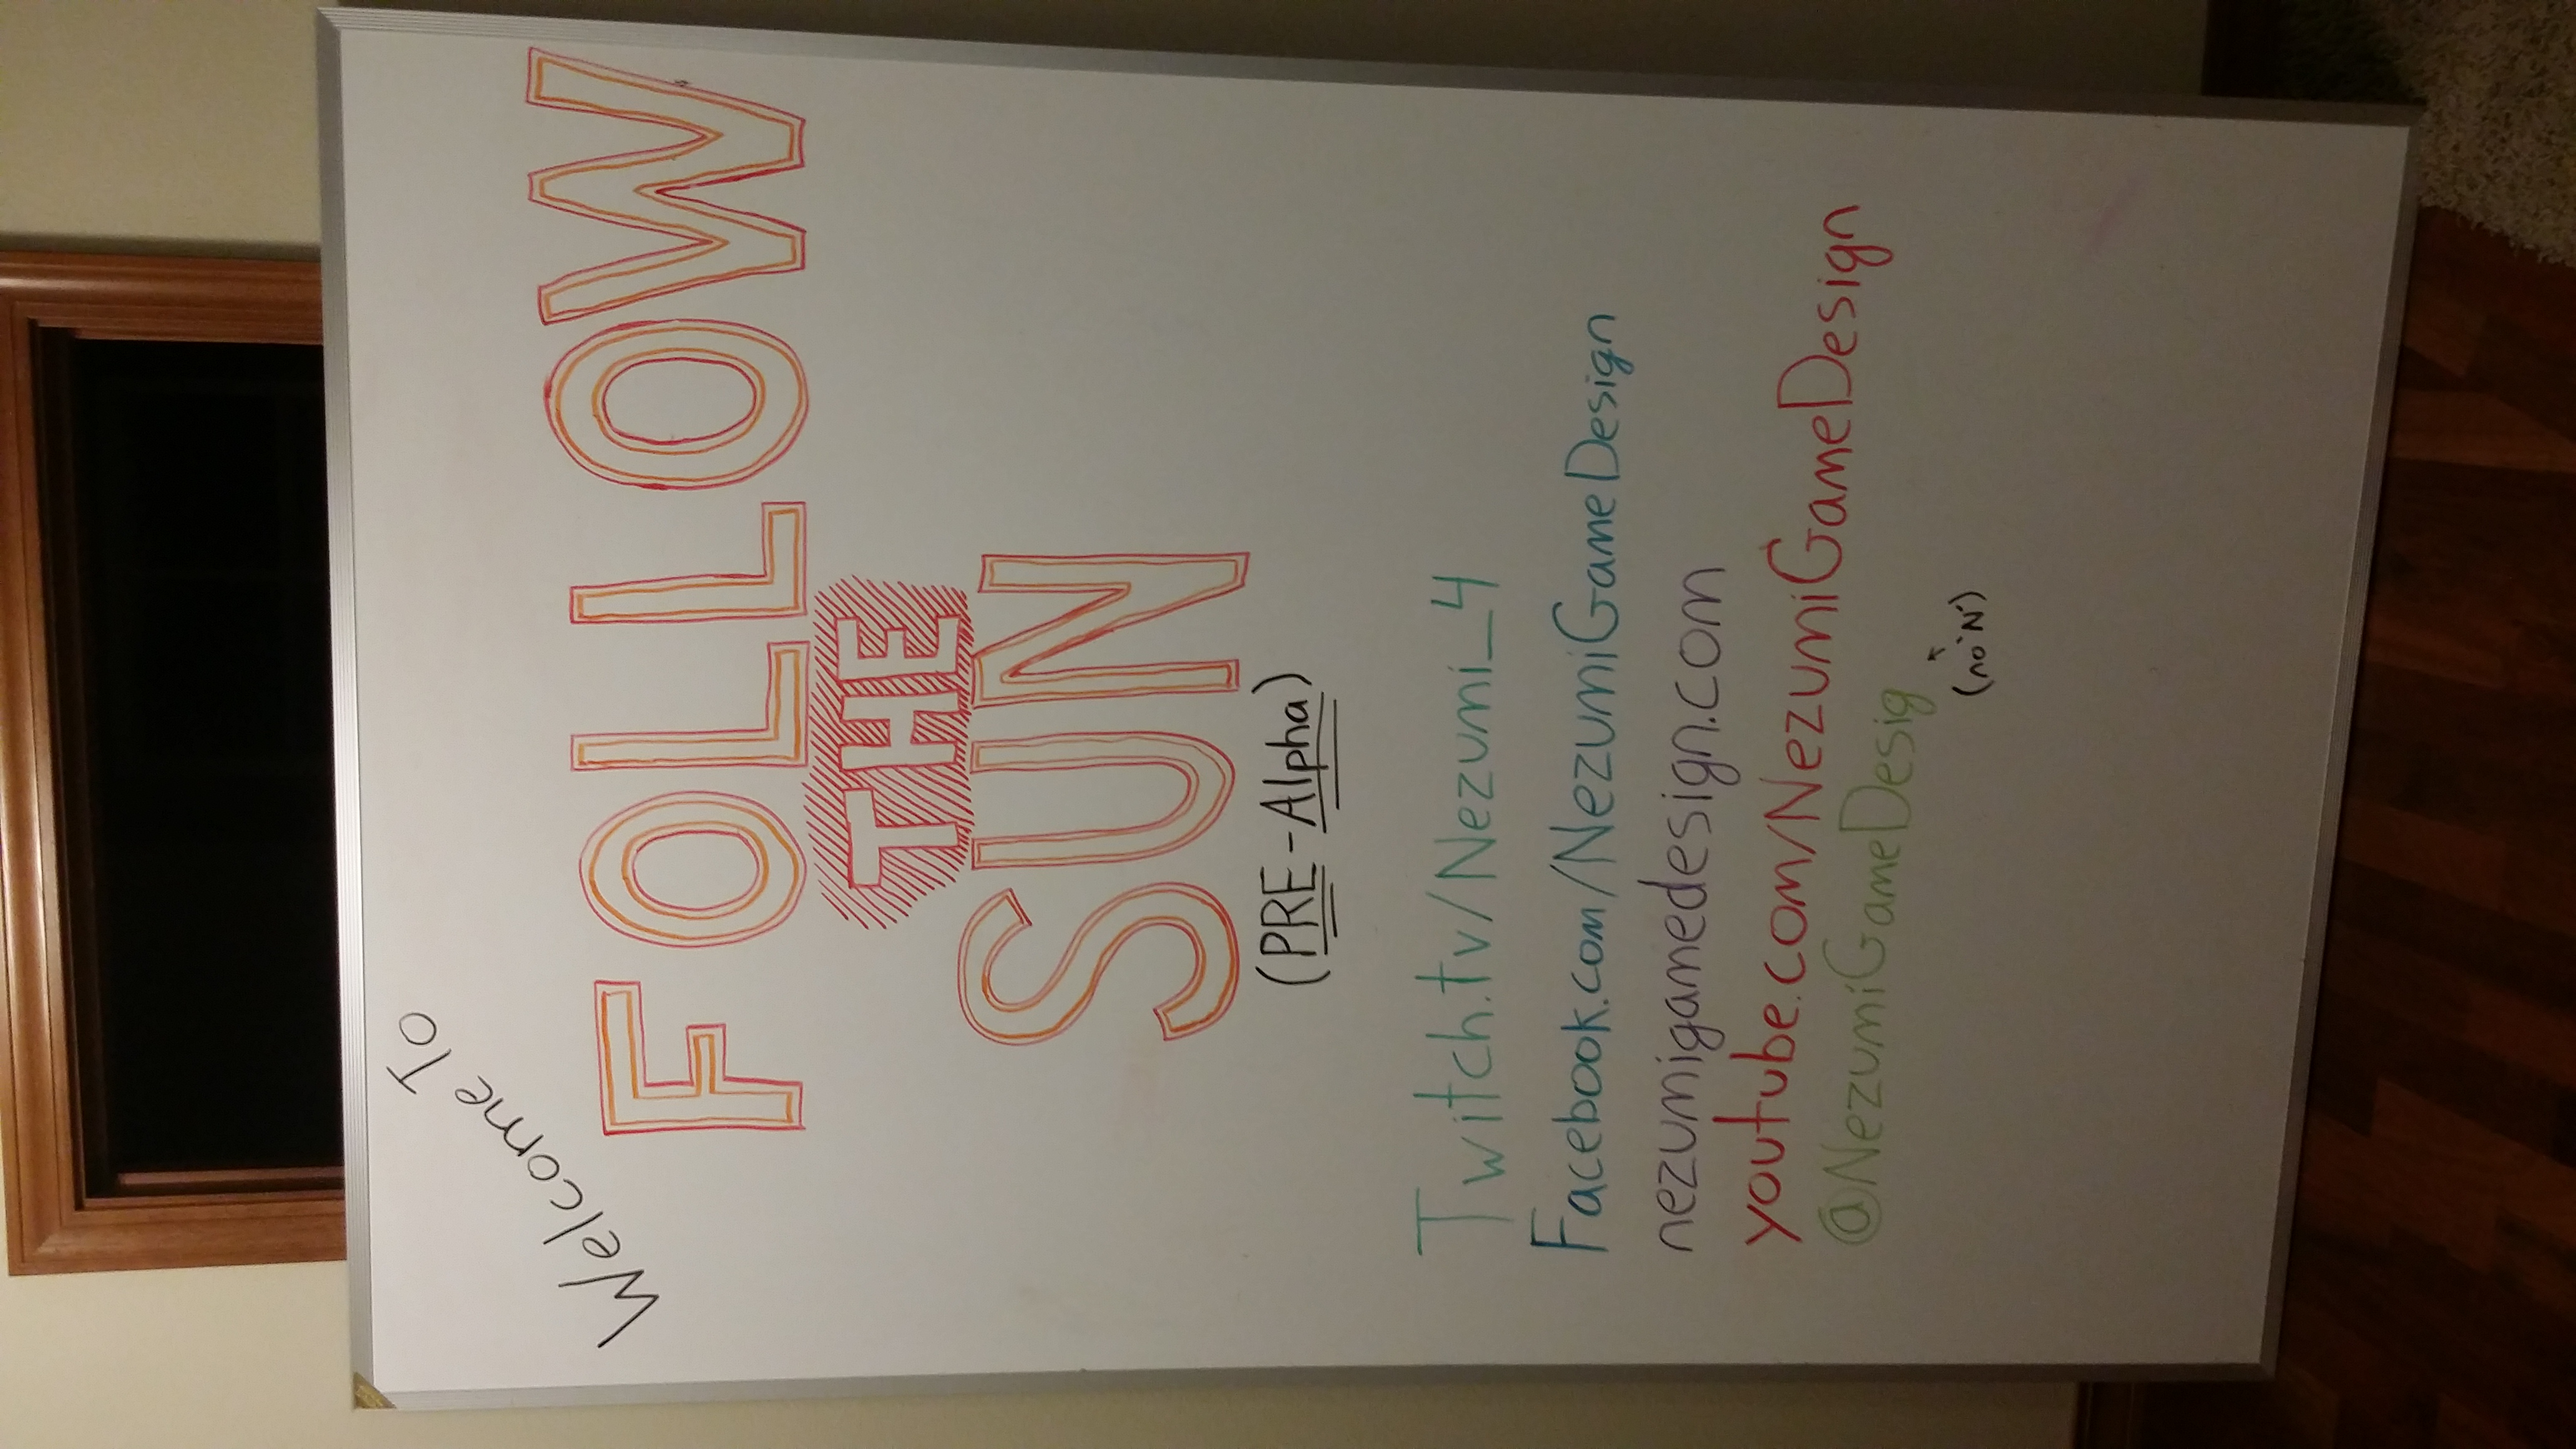 Welcome To
FOLLOW
THE
SUN
(PRE-Alpha)
Twitch.tv/Nezumi_4
Facebook.com/NezumiGameDesign
nezumigamedesign.com
youtube.com/NezumiGameDesign
@NezumiGameDesig
(no 'N')